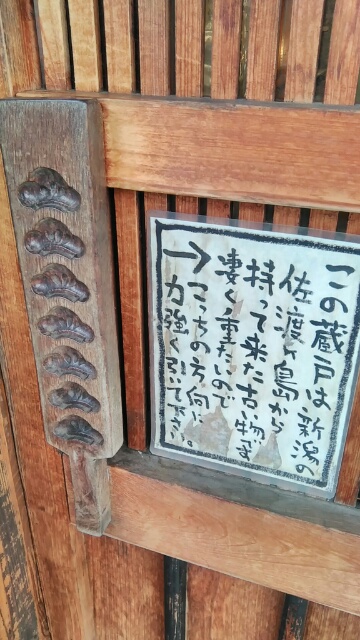 この蔵戸は、新潟の
佐渡ヶ島から
持って来た古い物で
凄く重たいので
→こっちの方向に
力強く引いて下さい。